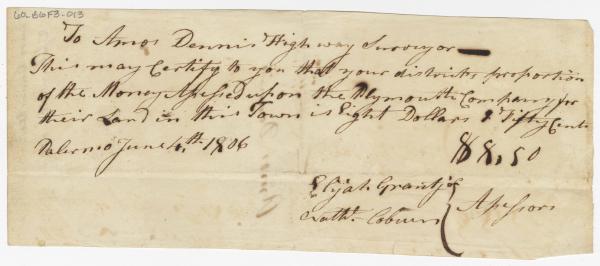 60-B6F3-013
To Amos Dennis Highway Surveyor
This may Certify to you that your districts proportion
of the Money Assessed upon the Plymouth Company for
their Land in this Town is Eight Dollars & Fifty Cents
Palermo June 4th 1806 $8,50
Elijah Grant
Nathl. Coburn } Assessors